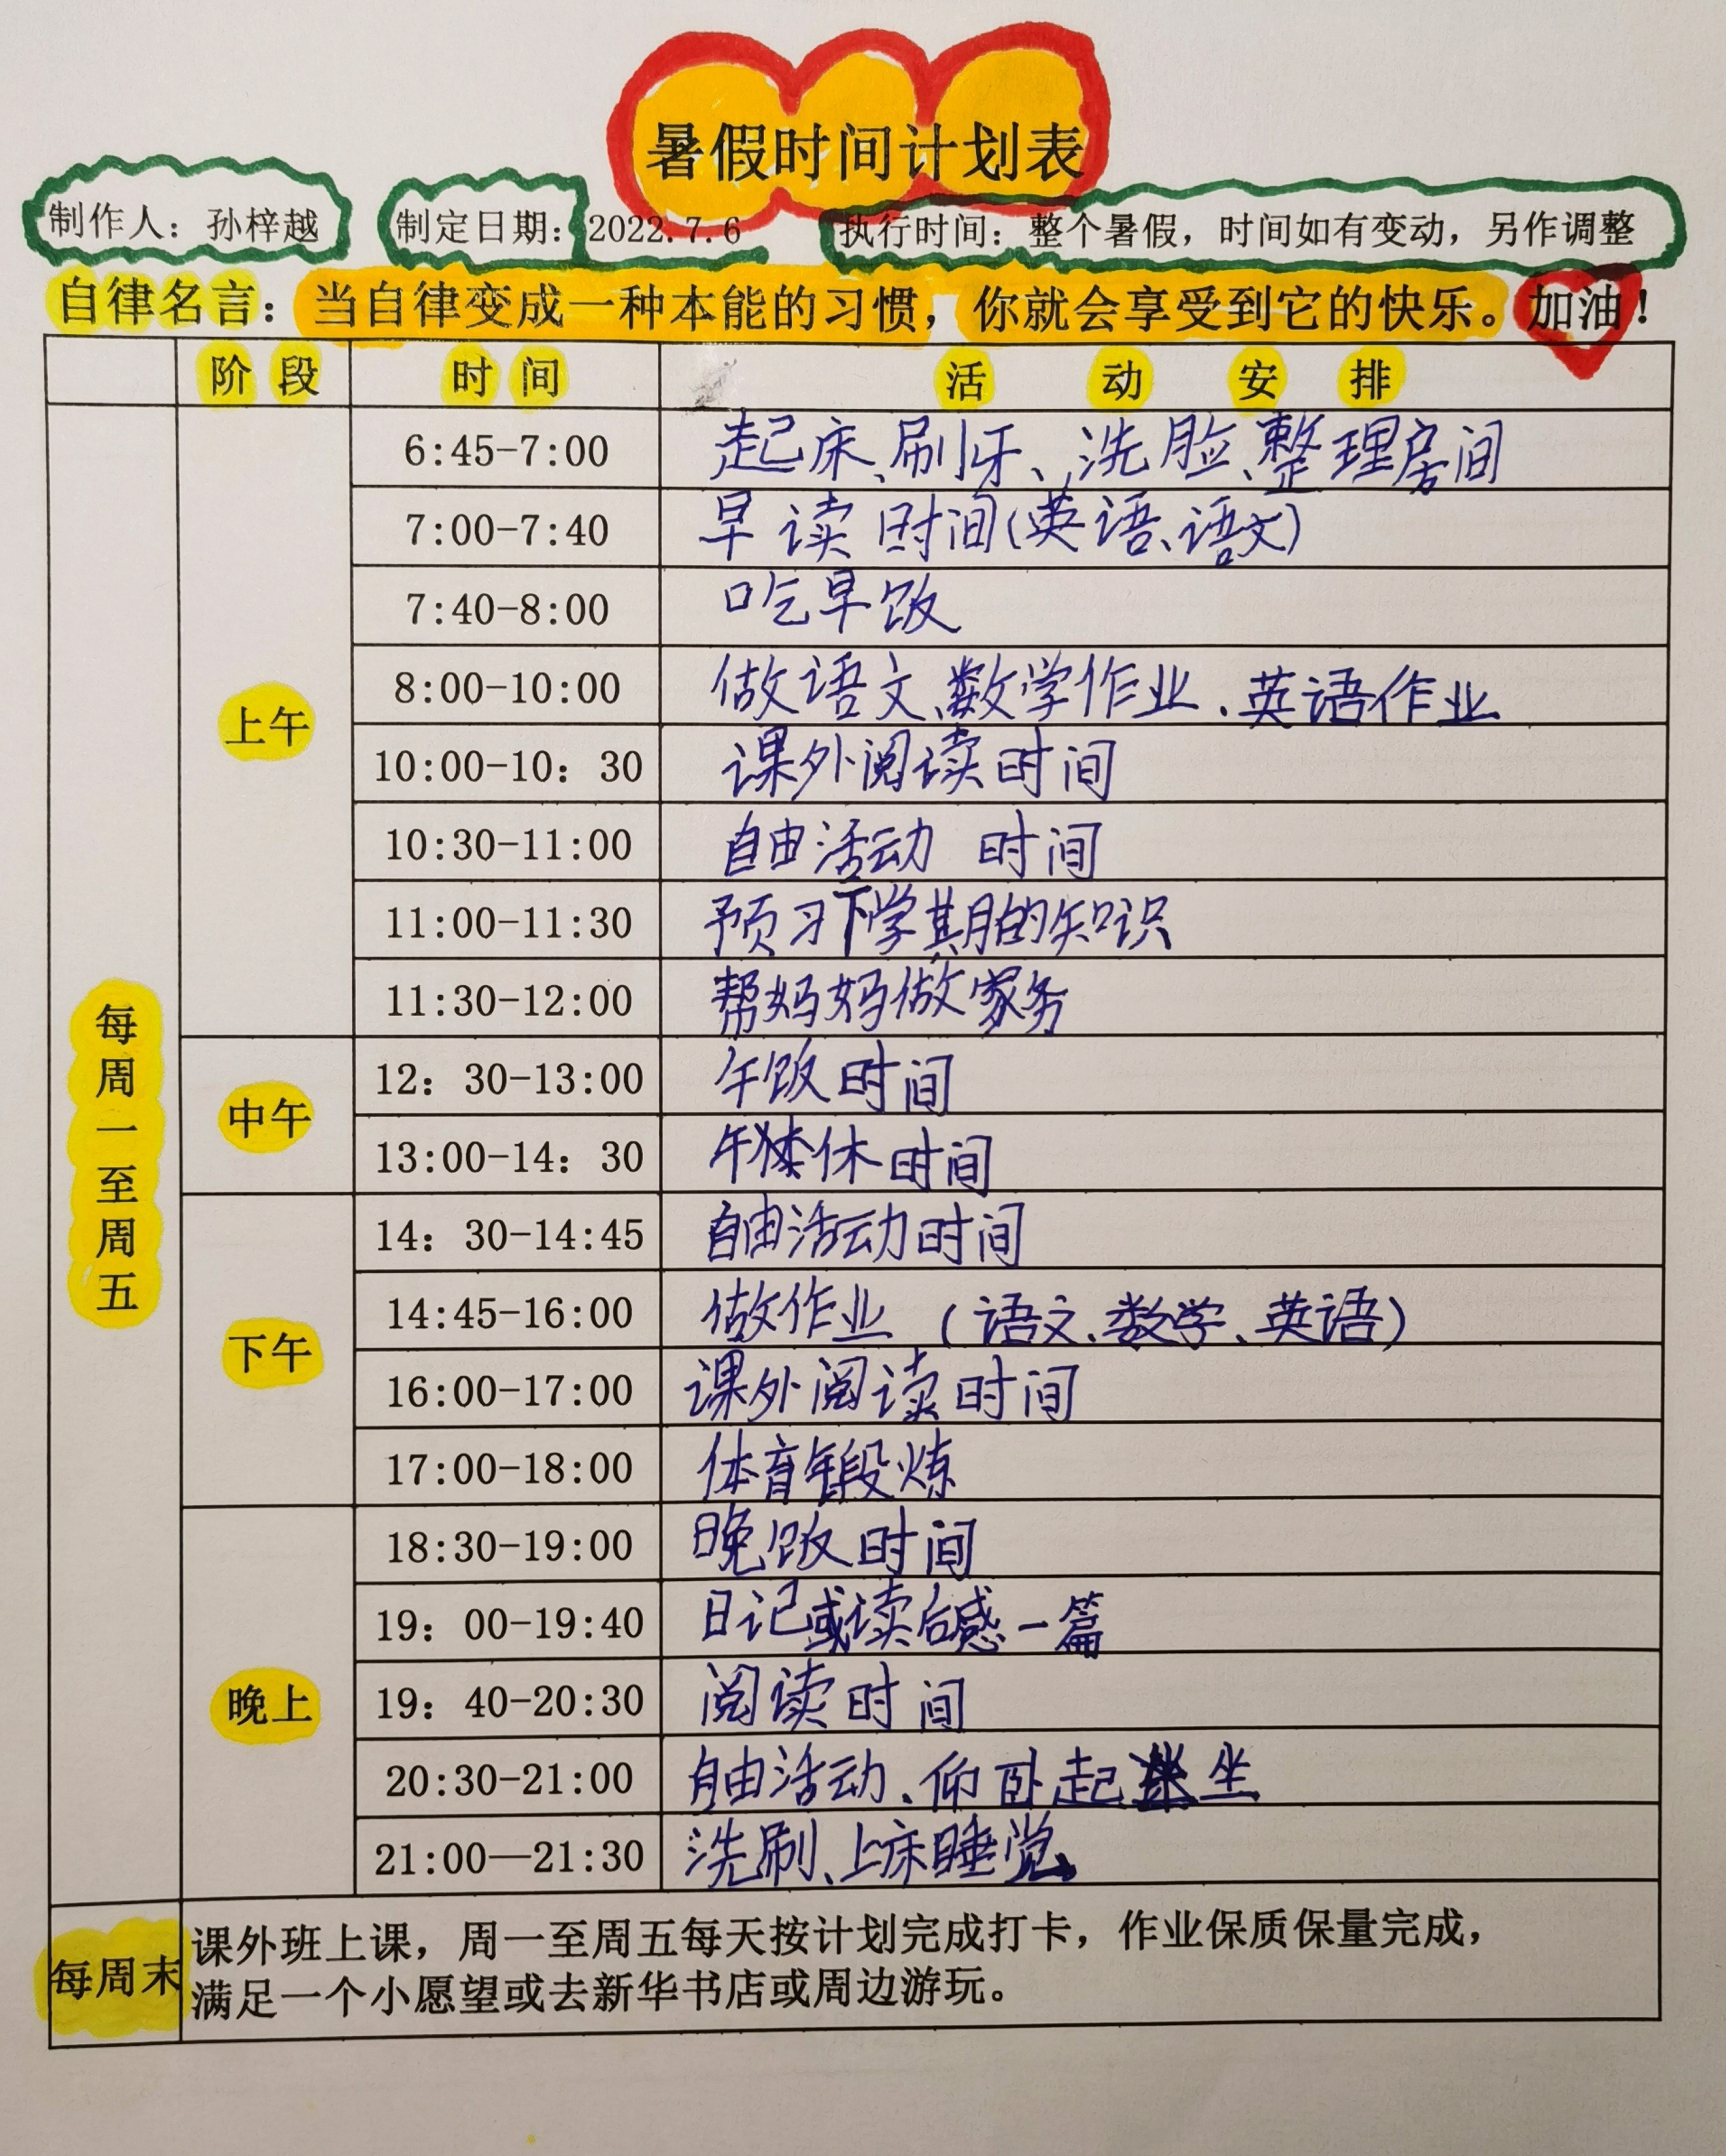 暑假时间计划表
制作人：孙梓越 制定日期：2022.7.6 执行时间：整个暑假，时间如有变动，另作调整
自律名言：当自律变成一种本能的习惯，你就会享受到它的快乐。加油！
阶段 时间 活动安排
每周一至周五
上午
6:45-7:00 起床、刷牙、洗脸、整理房间
7:00-7:40 早读时间(英语、语文)
7:40-8:00 吃早饭
8:00-10:00 做语文、数学作业、英语作业
10:00-10：30 课外阅读时间
10:30-11:00 自由活动 时间
11:00-11:30 预习下学期的知识
11:30-12:00 帮妈妈做家务
中午
12：30-13:00 午饭时间
13:00-14：30 午休时间
下午
14：30-14:45 自由活动时间
14:45-16:00 做作业 (语文、数学、英语)
16:00-17:00 课外阅读时间
17:00-18:00 体育锻炼
晚上
18:30-19:00 晚饭时间
19：00-19:40 日记或读后感一篇
19：40-20:30 阅读时间
20:30-21:00 自由活动、仰卧起坐
21:00—21:30 洗刷、上床睡觉
每周末
课外班上课，周一至周五每天按计划完成打卡，作业保质保量完成，
满足一个小愿望或去新华书店或周边游玩。